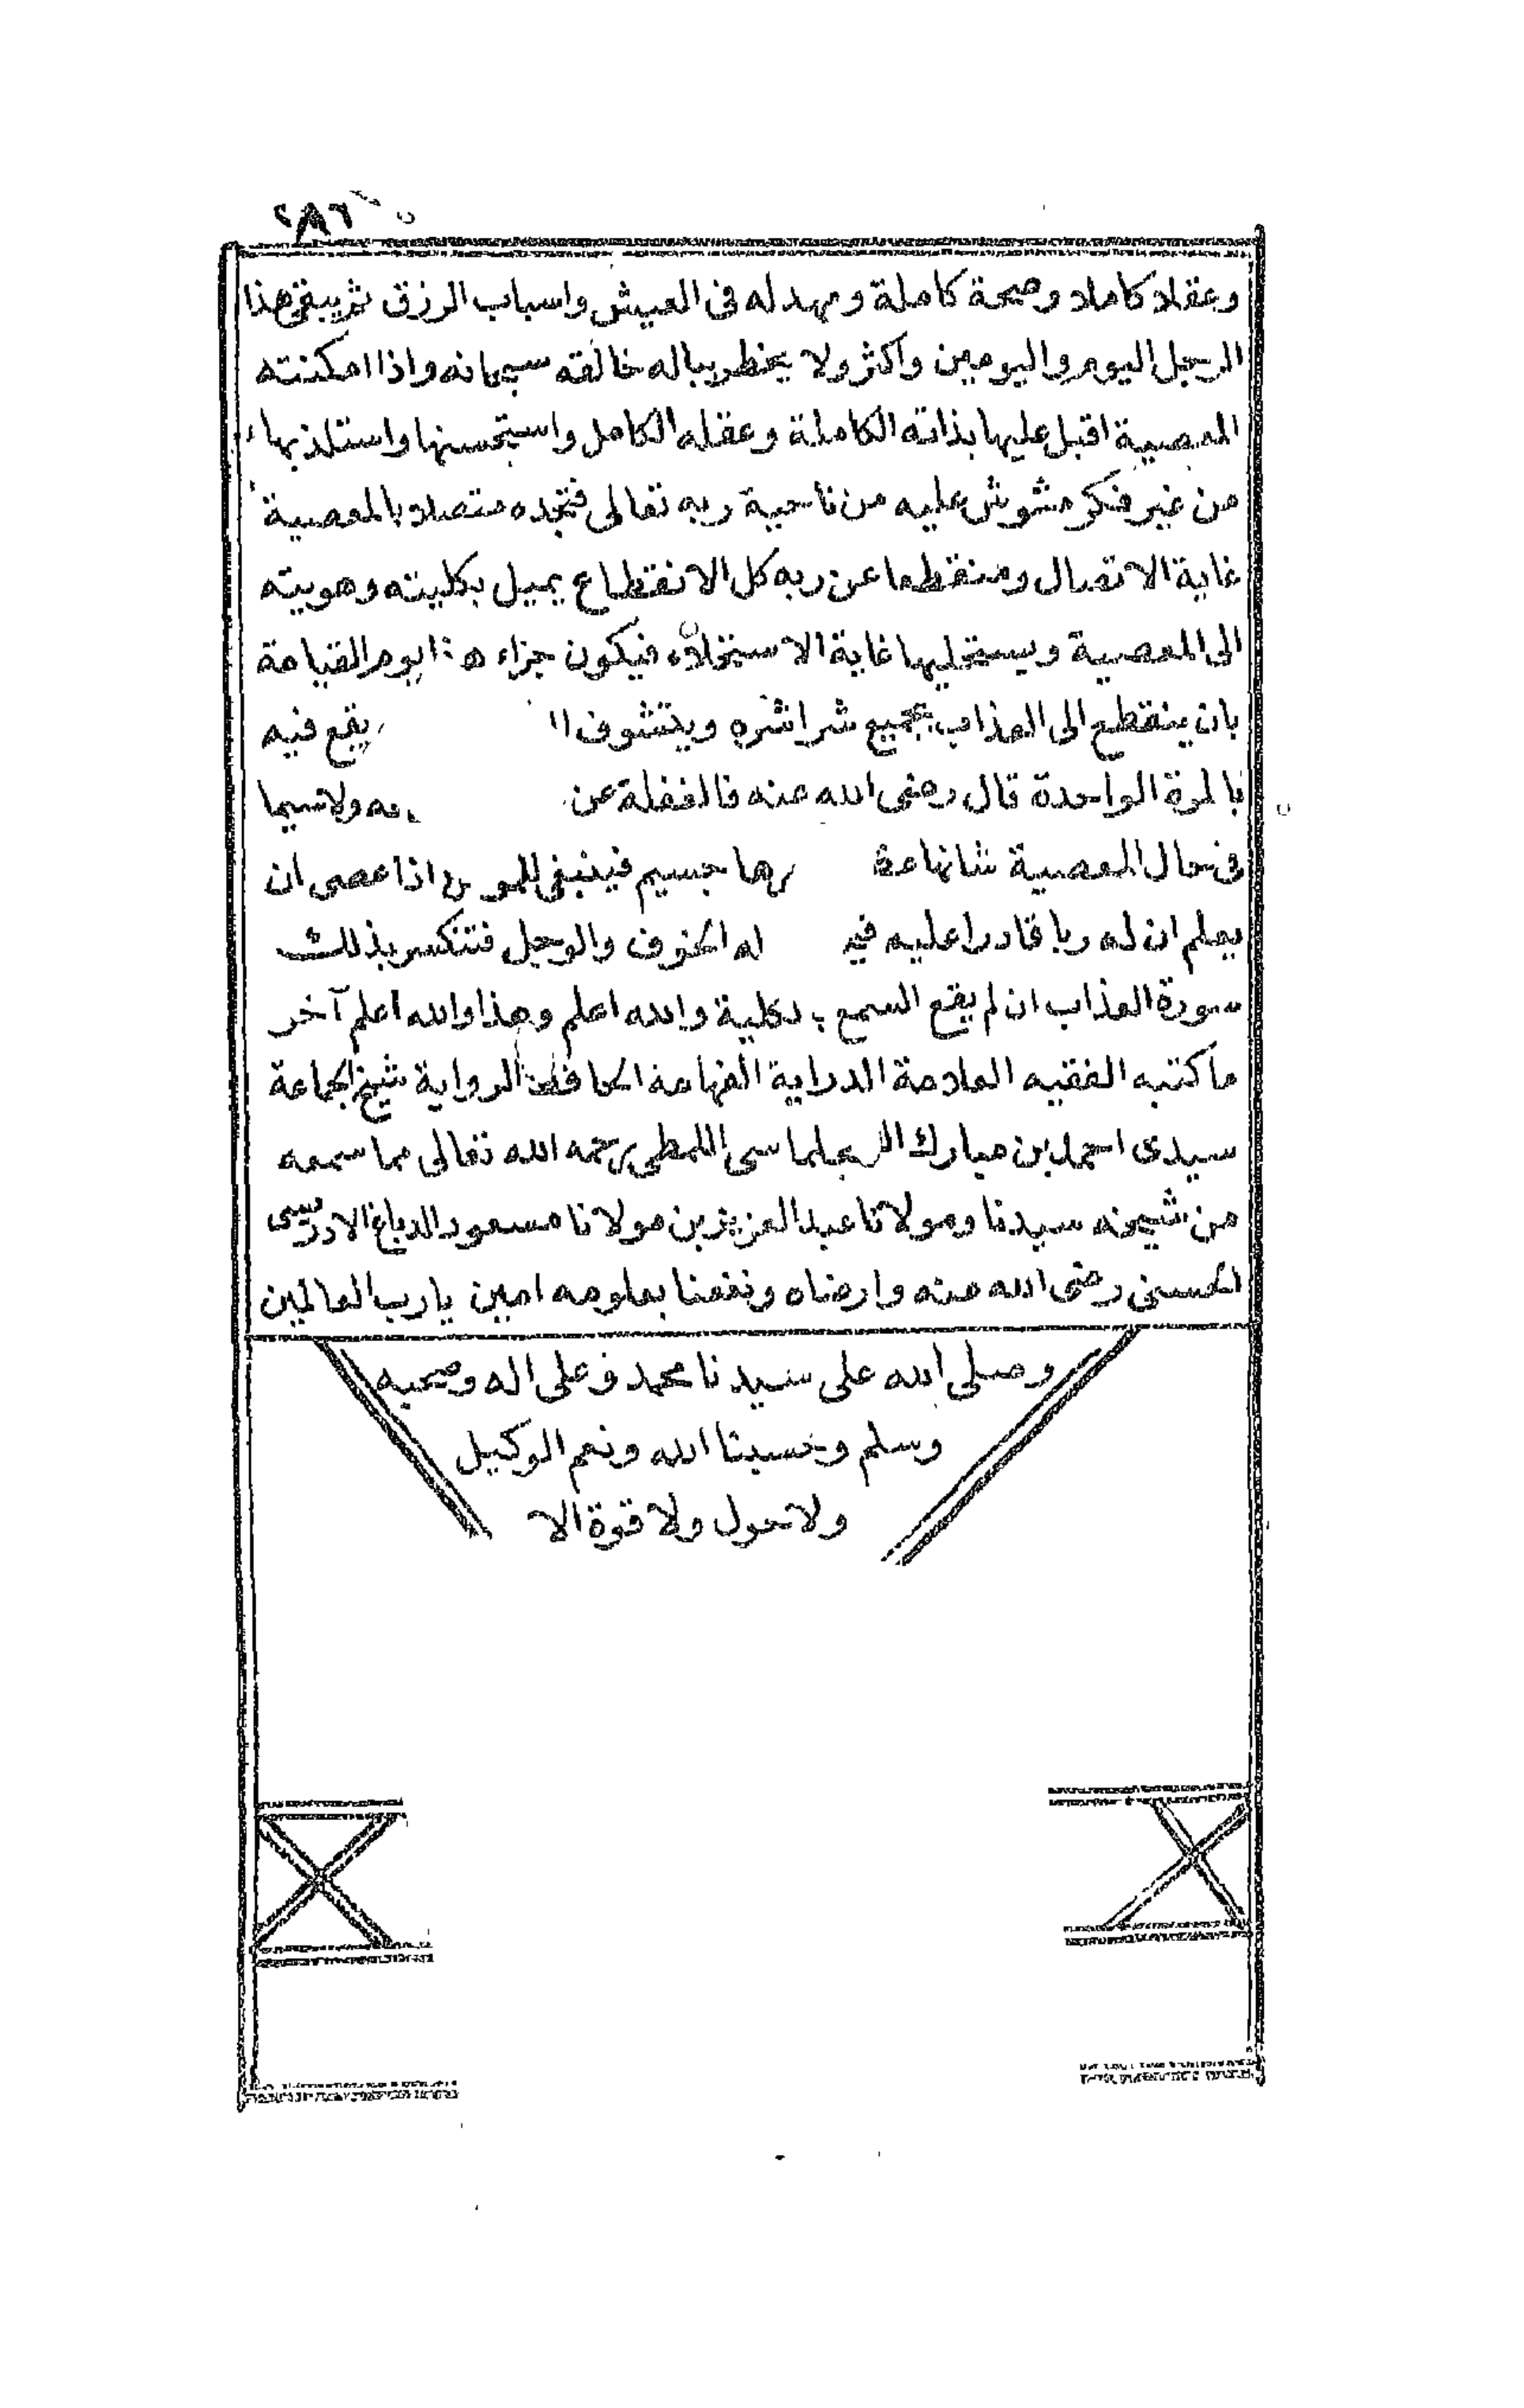 ٢٨٦
وعقلا كاملا وصحة كاملة ومهد له فى العيش واسباب الرزق ثم يبقى هذا
الرجل اليوم واليومين واكثر ولا يخطر بباله خالقه سبحانه واذا امكنته
المعصية اقبل عليها بذاته الكاملة وعقله الكامل واستحسنها واستلذ بها
من غير فكر مشوش عليه من ناحية ربه تعالى فتجده متصلا بالمعصية
غاية الاتصال ومنقطعا عن ربه كل الانقطاع يميل بكليته وهويته
الى المعصية ويستحليها غاية الاستحلاء فيكون جزاء هذا يوم القيامة
بان ينقطع الى العذاب بجميع شراشره ويتشوف يقع فيه
بالمرة الواحدة قال رضى الله عنه فالغفلة عن ولاسيما
فى حال المعصية شانها جسيم فينبغى للمومن اذا عصى ان
يعلم ان له ربا قادرا عليه له الخوف والوجل فتنكسر بذلك
سورة العذاب ان لم يقع السمع والله اعلم وهذا والله اعلم آخر
ما كتبه الفقيه العلامة الدراية الفهامة الحافظ الرواية شيخ الجماعة
سيدى احمد بن مبارك السجلماسى اللمطى رحمه الله تعالى مما سمعه
من شيخه سيدنا ومولانا عبد العزيز بن مولانا مسعود الدباغ الادريسى
الحسنى رضى الله عنه وارضاه ونفعنا بعلومه امين يا رب العالمين
وصلى الله على سيدنا محمد وعلى اله وصحبه
وسلم وحسبنا الله ونعم الوكيل
ولا حول ولا قوة الا